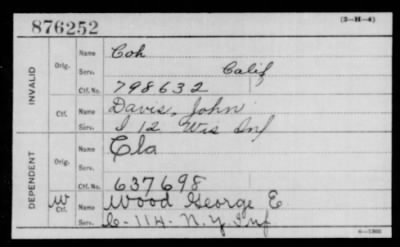 876252
(3-H-4)
INVALID
Orig.
Name Coh
Serv. Calif
Ctf. No. 798632
Ctf.
Name Davis, John
Serv. I 12 Wis Inf
DEPENDENT
Orig.
Name Ela
Serv.
Ctf. No. 637698
W Ctf.
Name Wood George E
Serv. C-114-N.Y Inf